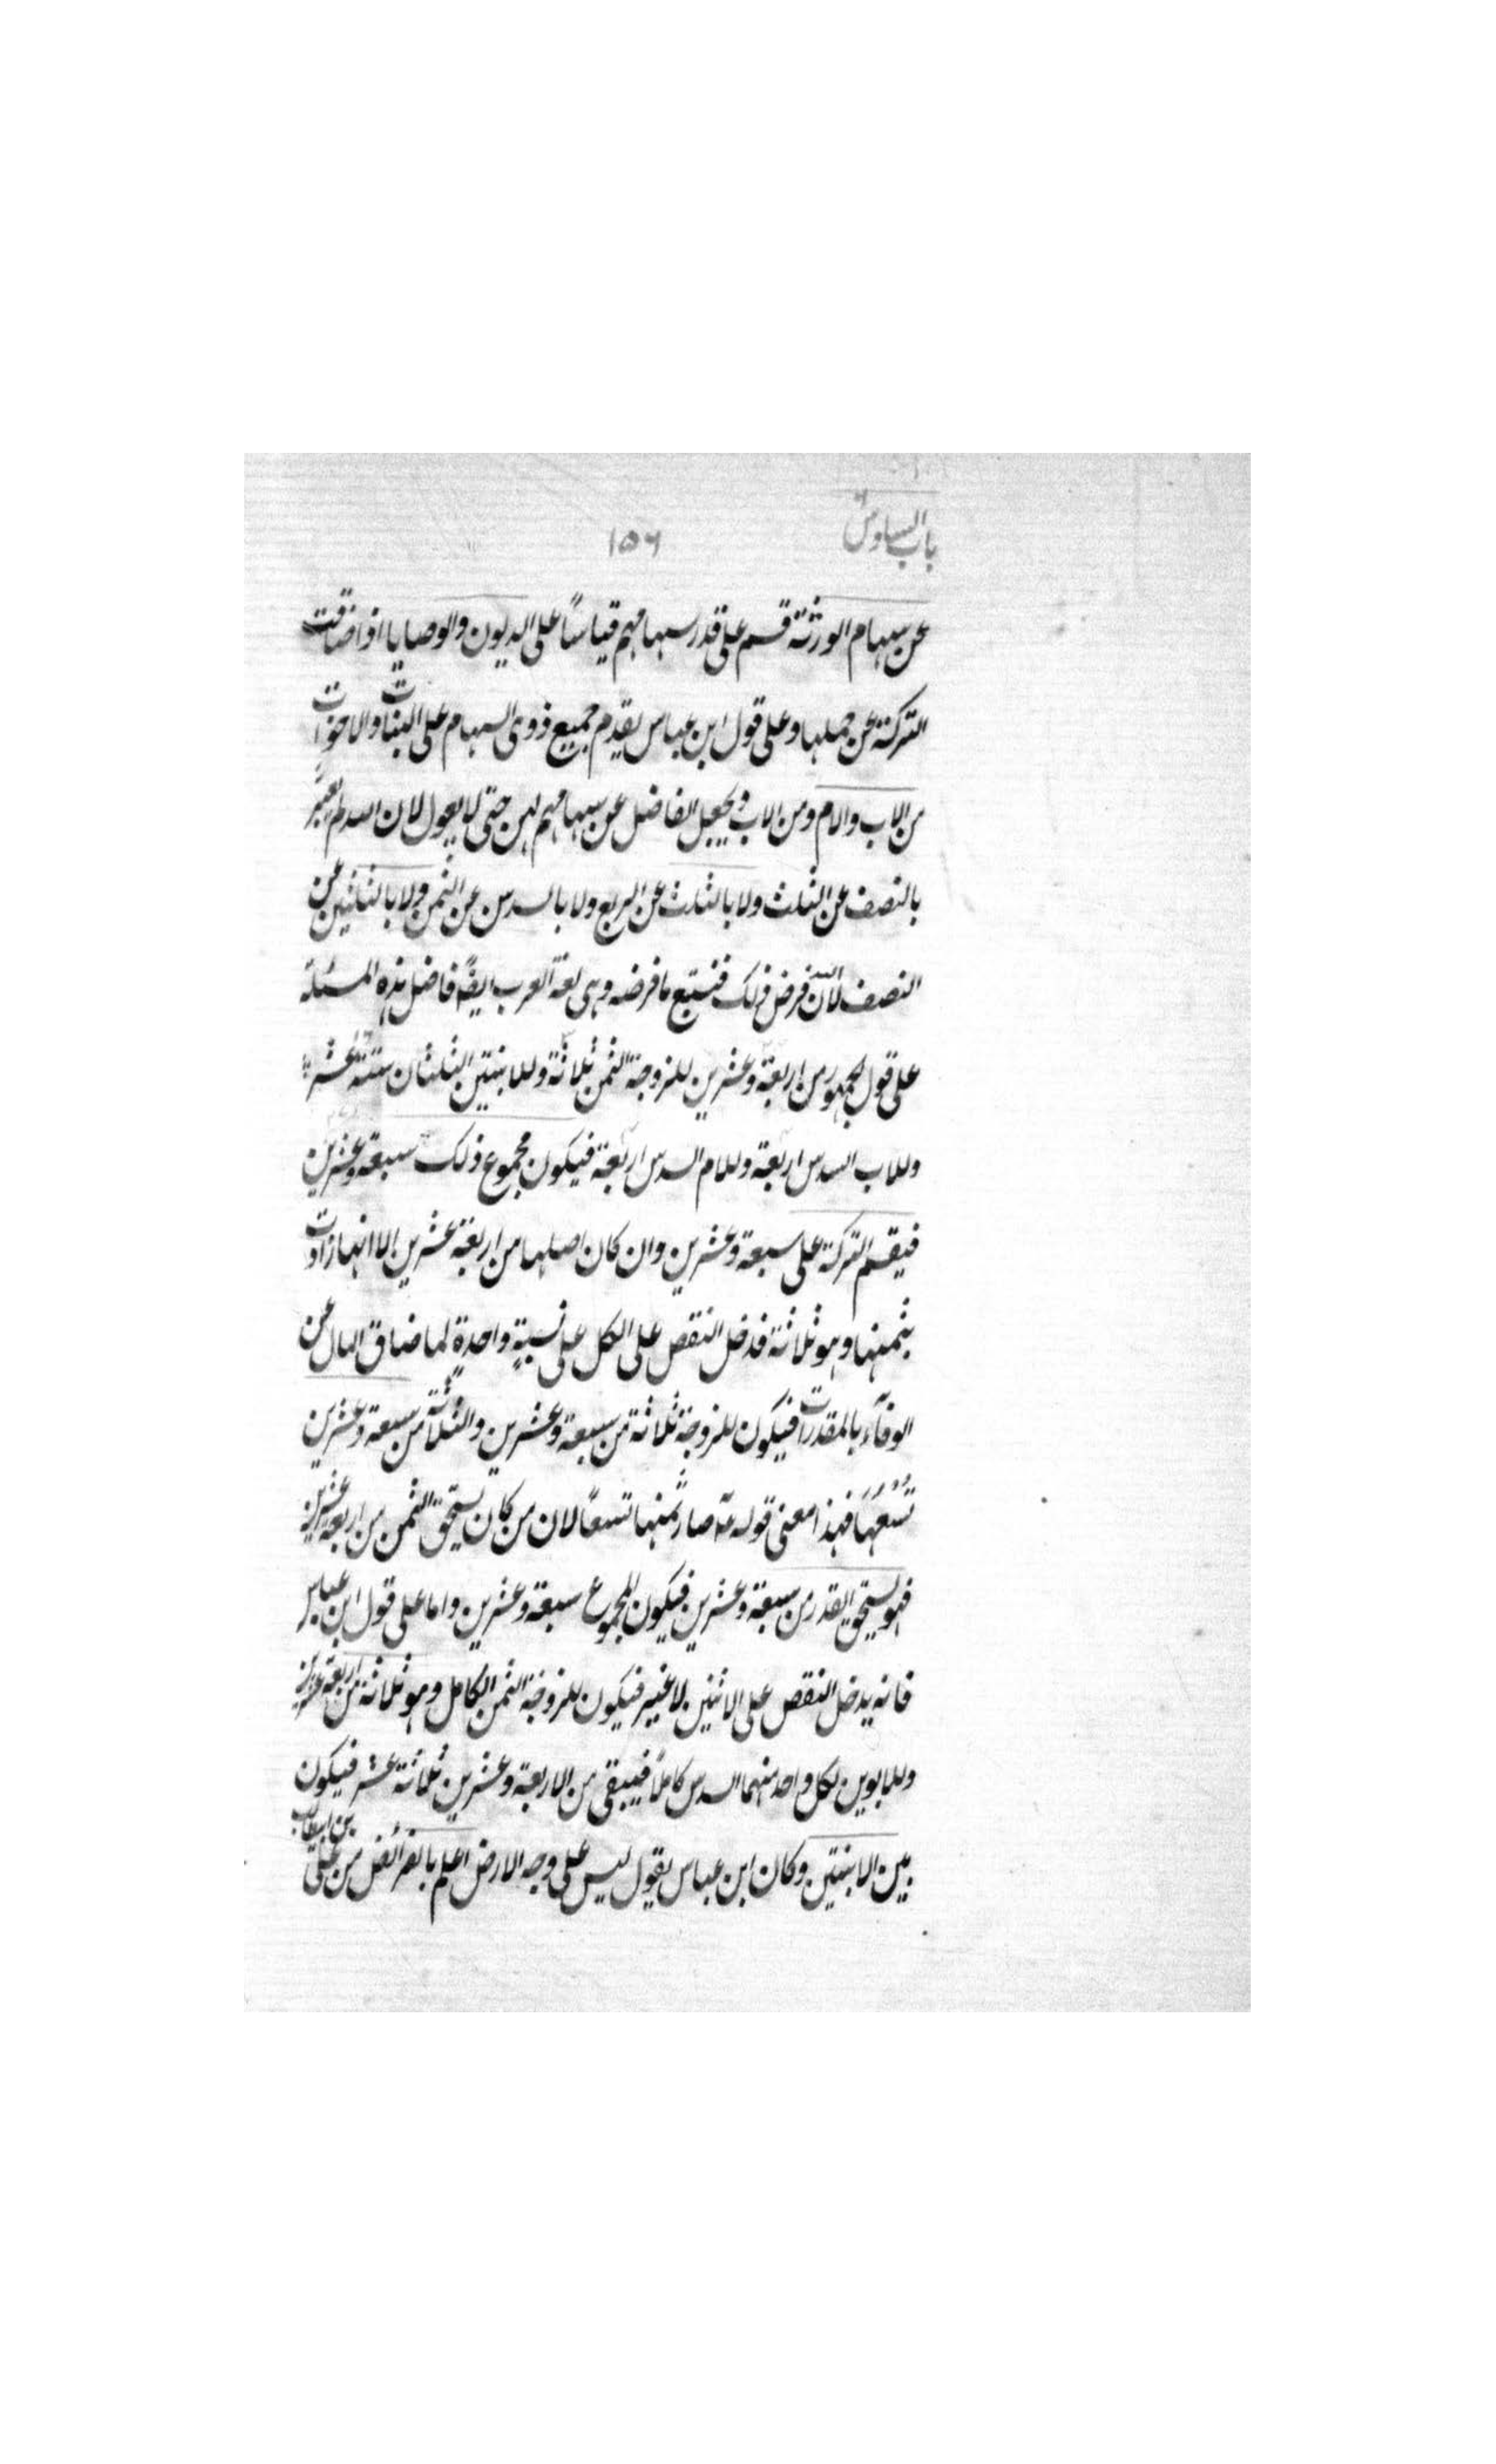 باب السادس ١٥٦
عن سهام الورثة قسم على قدر سهامهم قياسًا على الديون والوصايا اذا ضاقت
التركة عن حملها وعلى قول ابن عباس يقدم جميع ذوى السهام على البنات والاخوات
من الاب والام ومن الاب ويجعل الفاضل عن سهامهم لهن حتى لا يعول لان الله لم يعبر
بالنصف عن الثلث ولا بالثلث عن الربع ولا بالسدس عن الثمن ولا بالثلثين عن
النصف لان الله فرض ذلك فنتبع ما فرضه وهى لغة العرب ايضًا فاصل هذه المسئلة
على قول الجمهور من اربعة وعشرين للزوجة الثمن ثلاثة وللابنتين الثلثان ستة عشر
وللاب السدس اربعة وللام السدس اربعة فيكون مجموع ذلك سبعة وعشرين
فيقسم التركة على سبعة وعشرين وان كان اصلها من اربعة عشرين الا انها زادت
بثمنها وهو ثلاثة فدخل النقص على الكل على نسبةٍ واحدةٍ لما ضاق المال عن
الوفآء بالمقدرات فيكون للزوجة ثلاثة من سبعة وعشرين والثلاثة من سبعة وعشرين
تُسُعُهَا فهذا معنى قوله صار ثمنها تسعًا لان من كان يستحق الثمن من اربعة عشرين
فهو يستحق القدر من سبعة وعشرين فيكون المجموع سبعة وعشرين واما على قول ابن عباس
فانه يدخل النقص على الاثنين لا غير فيكون للزوجة الثمن الكامل وهو ثلاثة من اربعة عشرين
وللابوين لكل واحد منهما السدس كاملًا فيبقى من الاربعة وعشرين ثلاثة عشر فيكون
بين الابنتين وكان ابن عباس يقول ليس على وجه الارض اعلم بالفرائض من على بن ابيطالب